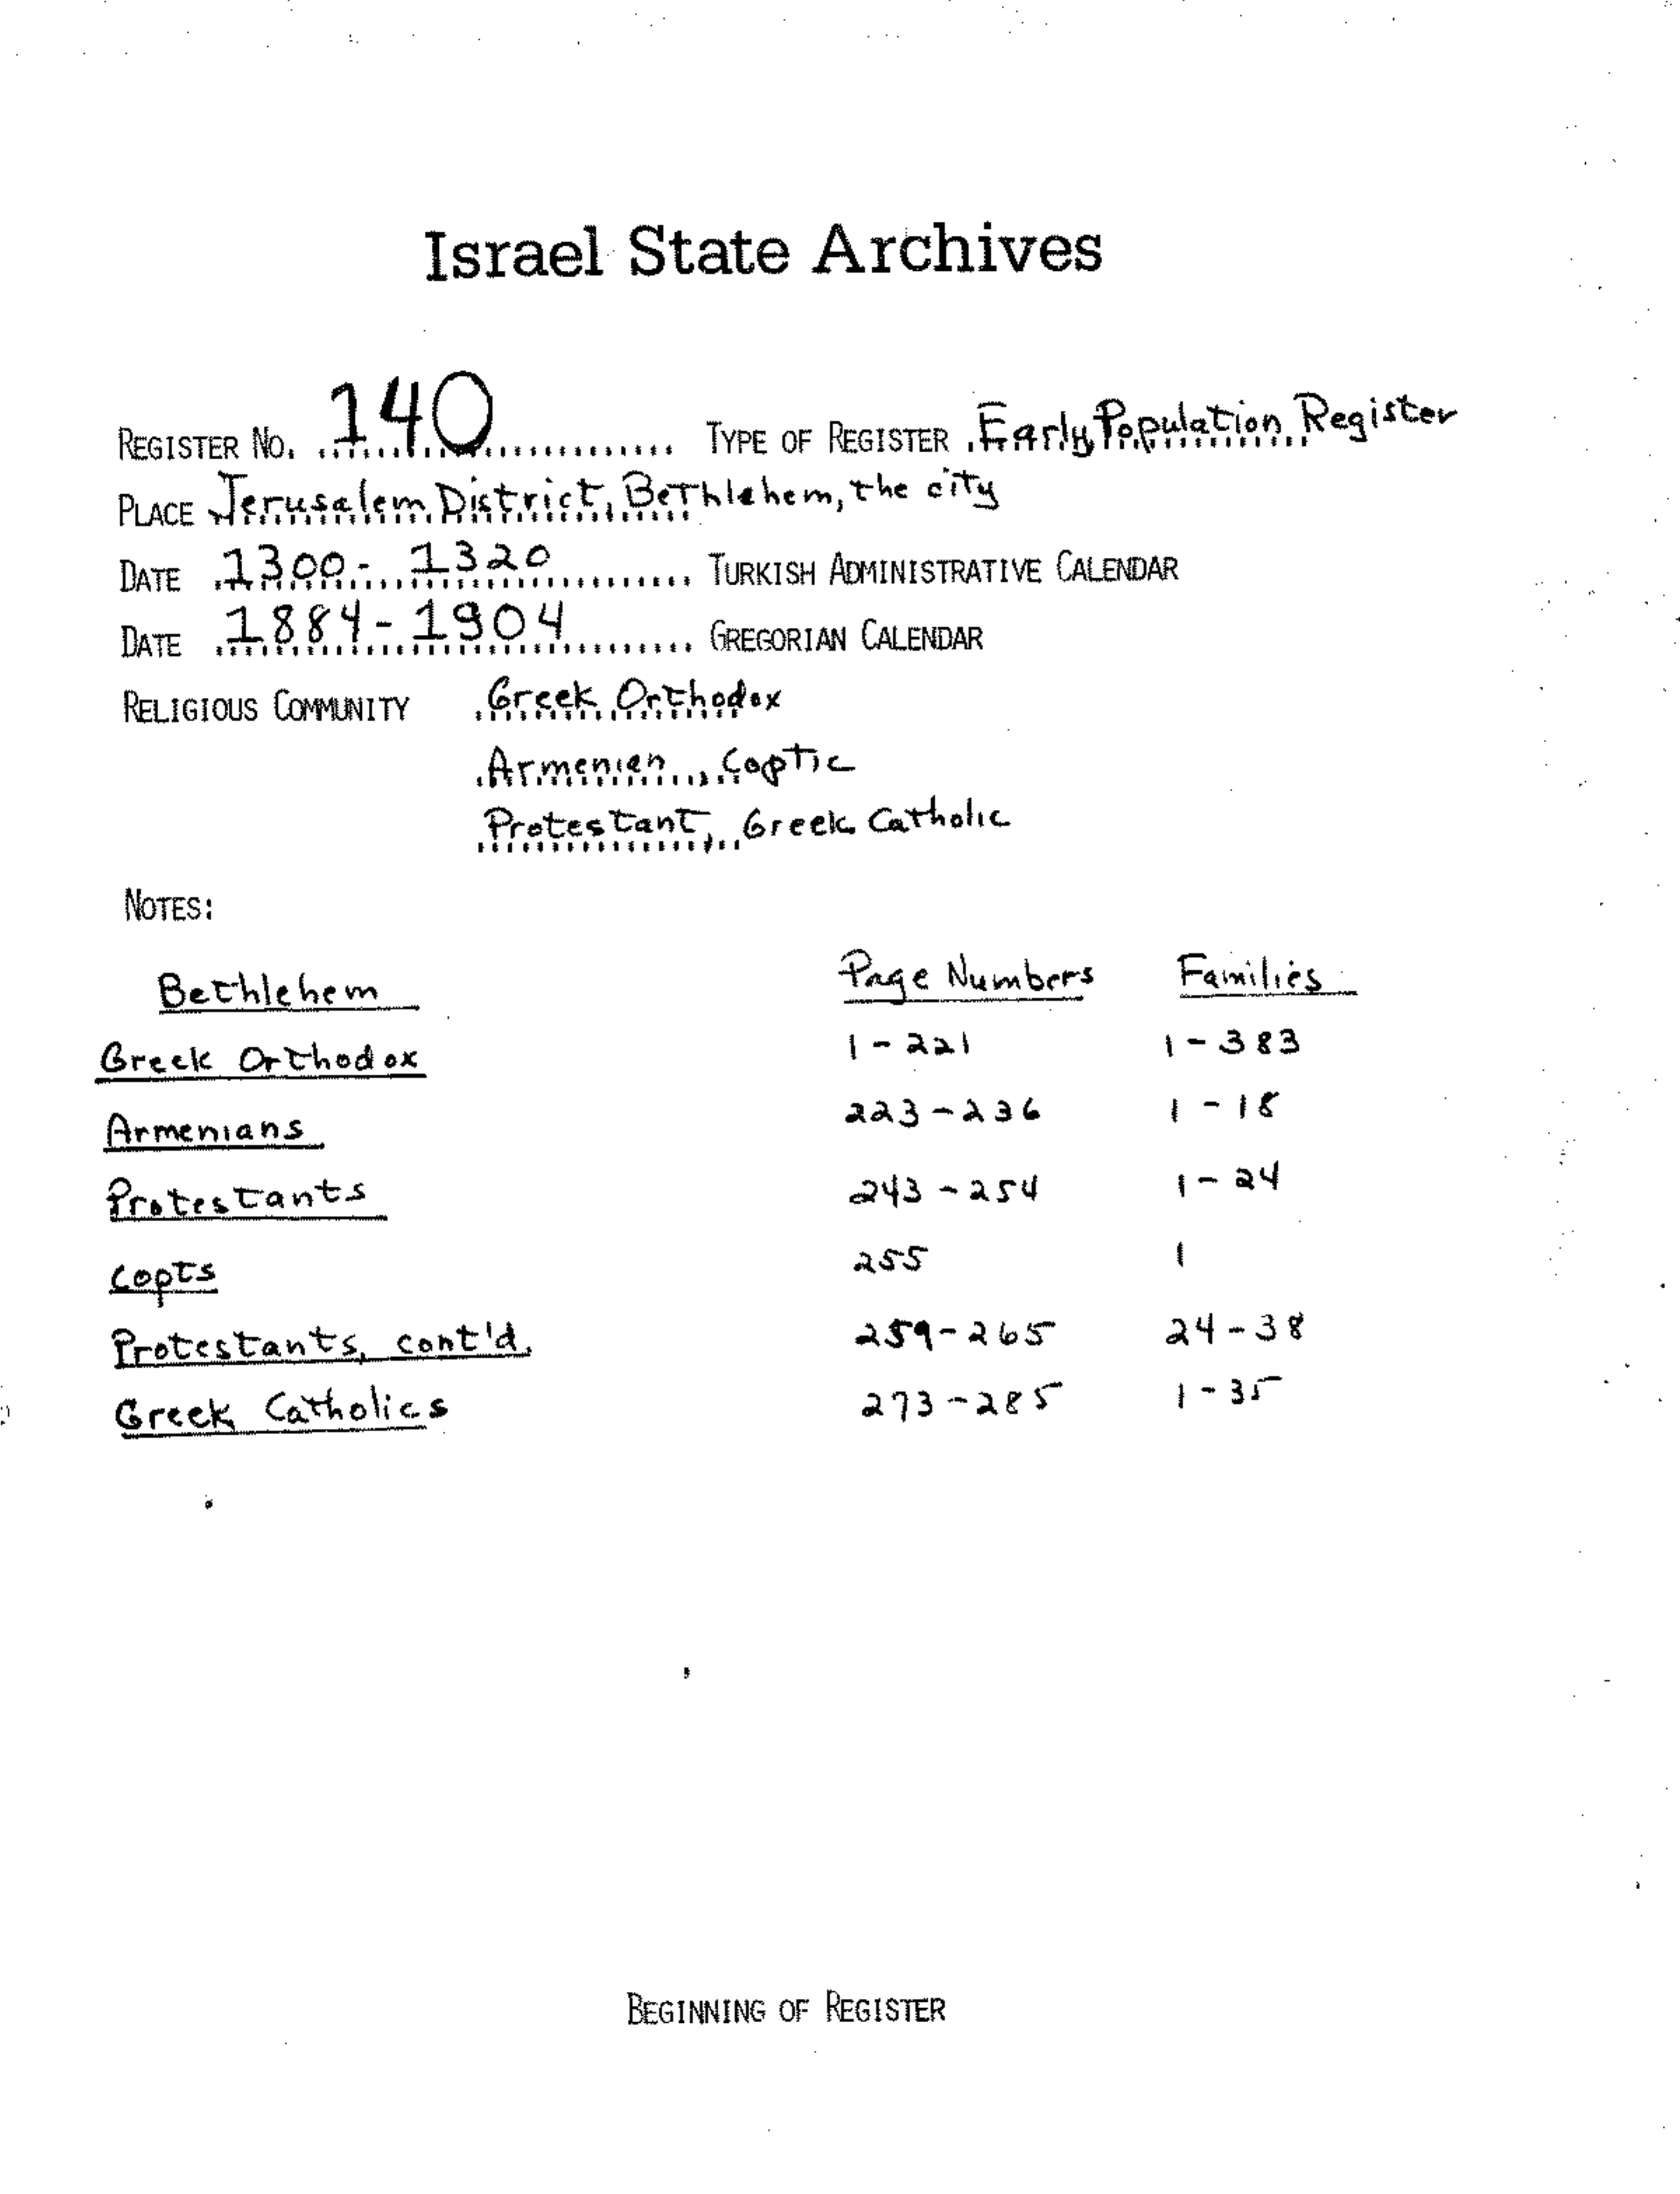 Israel State Archives
REGISTER NO. 140 TYPE OF REGISTER Early Population Register
PLACE Jerusalem District, Bethlehem, the city
DATE 1300 - 1320 TURKISH ADMINISTRATIVE CALENDAR
DATE 1884 - 1904 GREGORIAN CALENDAR
RELIGIOUS COMMUNITY Greek Orthodox
Armenian, Coptic
Protestant, Greek Catholic
NOTES:
Bethlehem Page Numbers Families
Greek Orthodox 1 - 221 1 - 383
Armenians 223 - 236 1 - 18
Protestants 243 - 254 1 - 24
Copts 255 1
Protestants, cont'd. 259 - 265 24 - 38
Greek Catholics 273 - 285 1 - 35
BEGINNING OF REGISTER